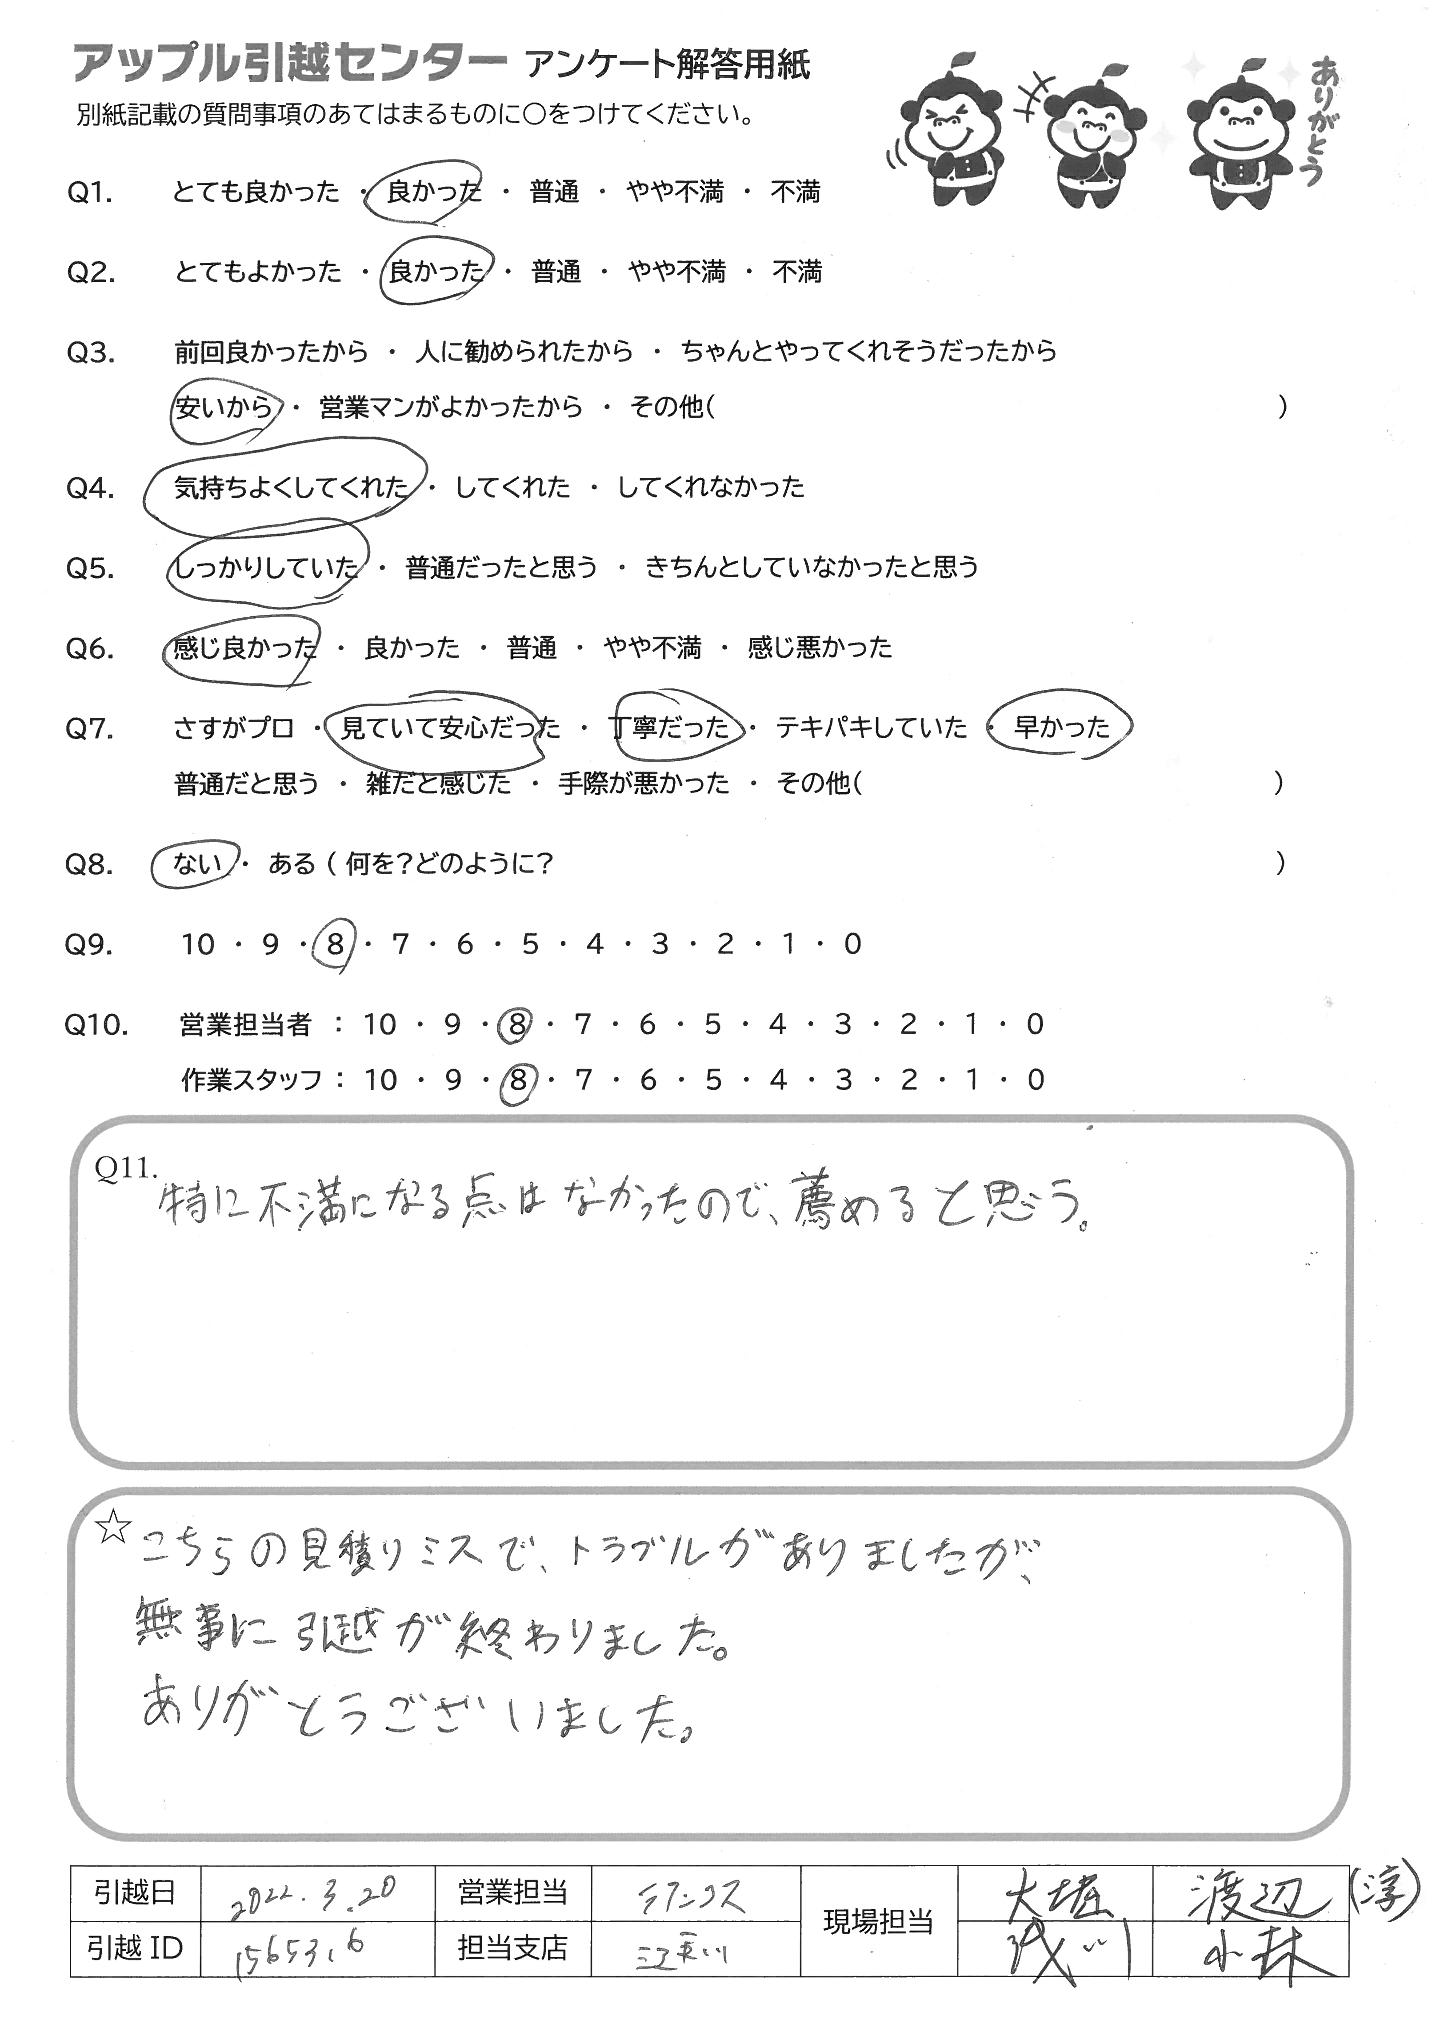 アップル引越センター アンケート解答用紙
別紙記載の質問事項のあてはまるものに○をつけてください。
ありがとう
Q1. とても良かった ・ 良かった ・ 普通 ・ やや不満 ・ 不満
Q2. とてもよかった ・ 良かった ・ 普通 ・ やや不満 ・ 不満
Q3. 前回良かったから ・ 人に勧められたから ・ ちゃんとやってくれそうだったから
安いから ・ 営業マンがよかったから ・ その他( )
Q4. 気持ちよくしてくれた ・ してくれた ・ してくれなかった
Q5. しっかりしていた ・ 普通だったと思う ・ きちんとしていなかったと思う
Q6. 感じ良かった ・ 良かった ・ 普通 ・ やや不満 ・ 感じ悪かった
Q7. さすがプロ ・ 見ていて安心だった ・ 丁寧だった ・ テキパキしていた ・ 早かった
普通だと思う ・ 雑だと感じた ・ 手際が悪かった ・ その他( )
Q8. ない ・ ある ( 何を?どのように? )
Q9. 10 ・ 9 ・ 8 ・ 7 ・ 6 ・ 5 ・ 4 ・ 3 ・ 2 ・ 1 ・ 0
Q10. 営業担当者 : 10 ・ 9 ・ 8 ・ 7 ・ 6 ・ 5 ・ 4 ・ 3 ・ 2 ・ 1 ・ 0
作業スタッフ : 10 ・ 9 ・ 8 ・ 7 ・ 6 ・ 5 ・ 4 ・ 3 ・ 2 ・ 1 ・ 0
Q11. 特に不満になる点はなかったので、薦めると思う。
☆こちらの見積りミスで、トラブルがありましたが、
無事に引越が終わりました。
ありがとうございました。
引越日 2022.3.20 営業担当 現場担当 大堀 渡辺(淳)
引越ID 156531.6 担当支店 江東 浅川 小林